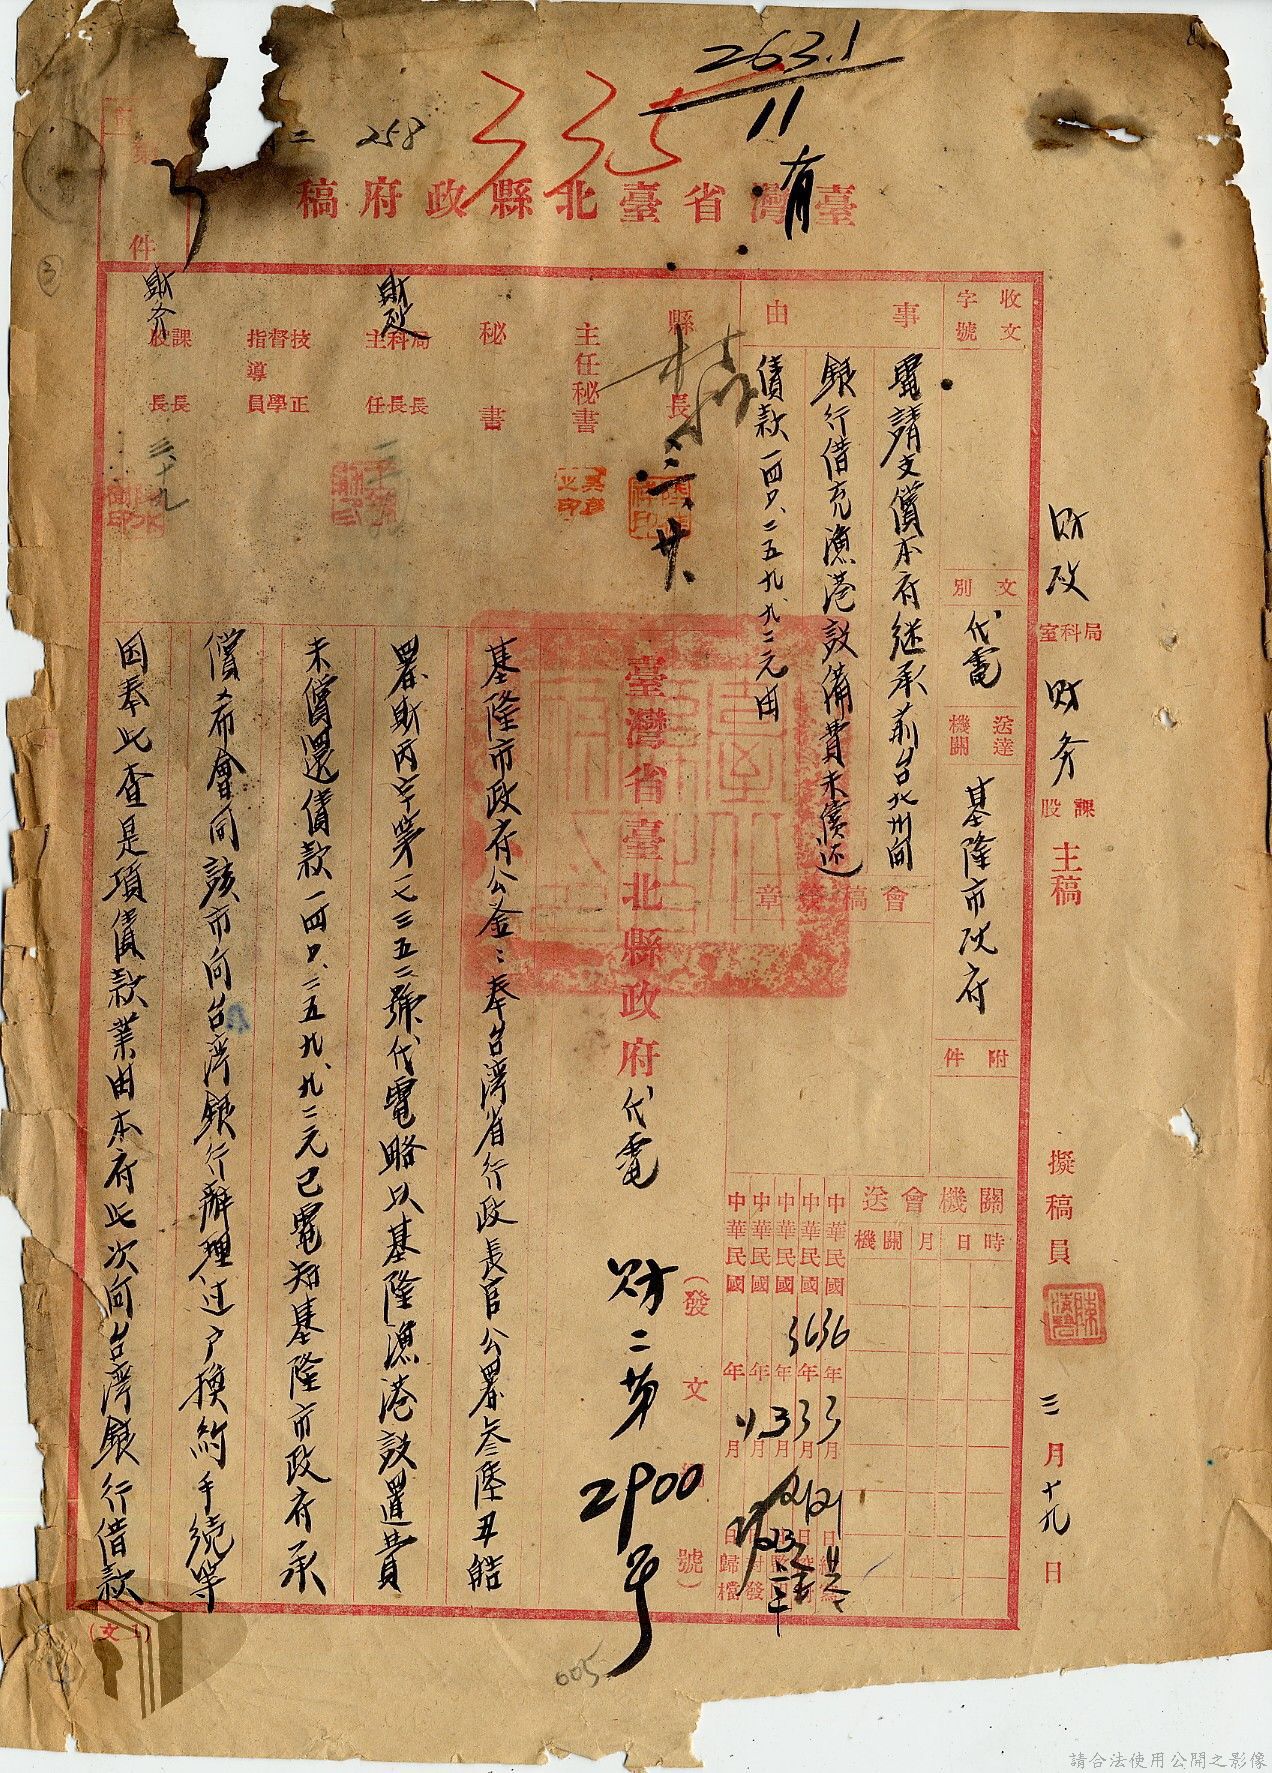 263.1
11
有
335
258
臺灣省臺北縣政府稿
件
收文
字號
文別
代電
送達機關
基隆市政府
附件
事由
電請支償本府繼承前台北州向
銀行借充漁港設備費未償还
債款一四〇、二五九、九二元由
會稿簽章
縣長
三、廿、
主任秘書
秘書
局科主
長長任
財政
技督指
導
正學員
課股
長長
財務
三、十九
財政
局科室
財务
課股
主稿
擬稿員
三月十九日
關機會送
時日月關機
中華民國36年3月21日
中華民國36年3月21日
中華民國年3月23日
中華民國年月日歸檔
臺灣省臺北縣政府代電
(發文號)
財二第
2900
號
基隆市政府公鉴:奉台湾省行政長官公署叁陸丑皓
署財丙字第一七三五二號代電略以基隆漁港設置費
未償還債款一四〇、二五九、九二元已電知基隆市政府承
償希會同該市向台湾銀行辦理过户換約手続等
因奉此查是項債款業由本府此次向台湾銀行借款
(文1)
605
請合法使用公開之影像